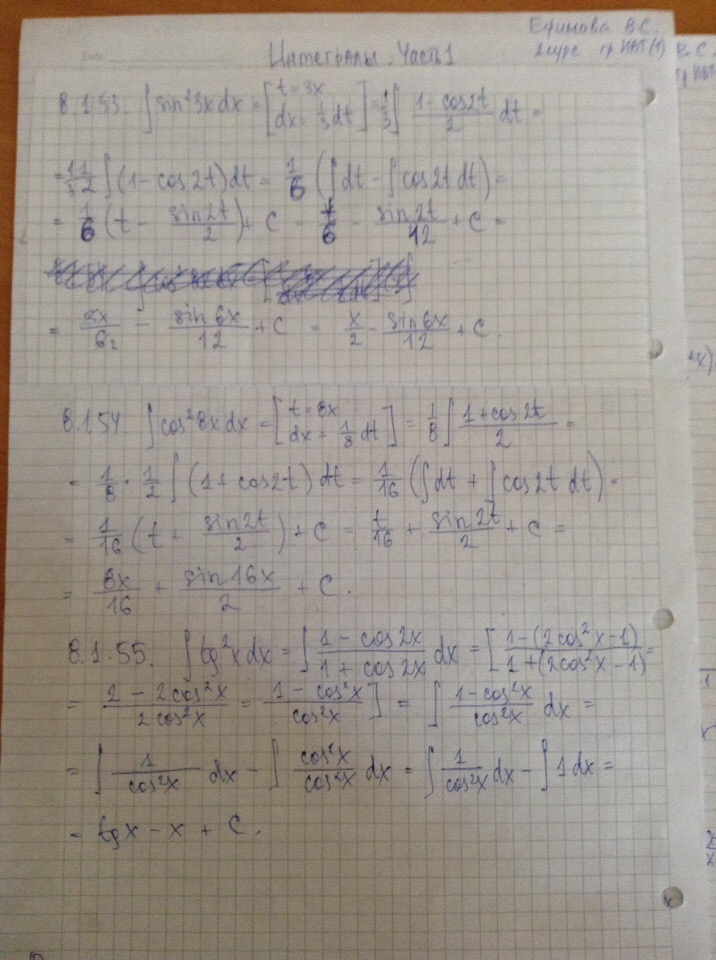 Ефимова В.С.
2 курс гр ИВТ(1)
Интегралы. Часть 1
8.1.53. ∫sin²3x dx = [t = 3x dx = 1/3 dt] = 1/3 ∫ (1-cos2t)/2 dt =
= 1/3 1/2 ∫(1-cos2t)dt = 1/6 (∫dt - ∫cos2t dt) =
= 1/6 (t - sin2t/2) + C = t/6 - sin2t/12 + C =
= 3x/6₂ - sin6x/12 + C = x/2 - sin6x/12 + C.
8.1.54. ∫cos²8x dx = [t = 8x dx = 1/8 dt] = 1/8 ∫ (1+cos2t)/2 =
= 1/8 · 1/2 ∫(1+cos2t) dt = 1/16 (∫dt + ∫cos2t dt) =
= 1/16 (t + sin2t/2) + C = t/16 + sin2t/2 + C =
= 8x/16 + sin16x/2 + C.
8.1.55. ∫tg²x dx = ∫ (1-cos2x)/(1+cos2x) dx = [(1-(2cos²x-1))/(1+(2cos²x-1)) =
= (2-2cos²x)/(2cos²x) = (1-cos²x)/(cos²x)] = ∫ (1-cos²x)/(cos²x) dx =
= ∫ 1/cos²x dx - ∫ cos²x/cos²x dx = ∫ 1/cos²x dx - ∫1 dx =
= tgx - x + C.